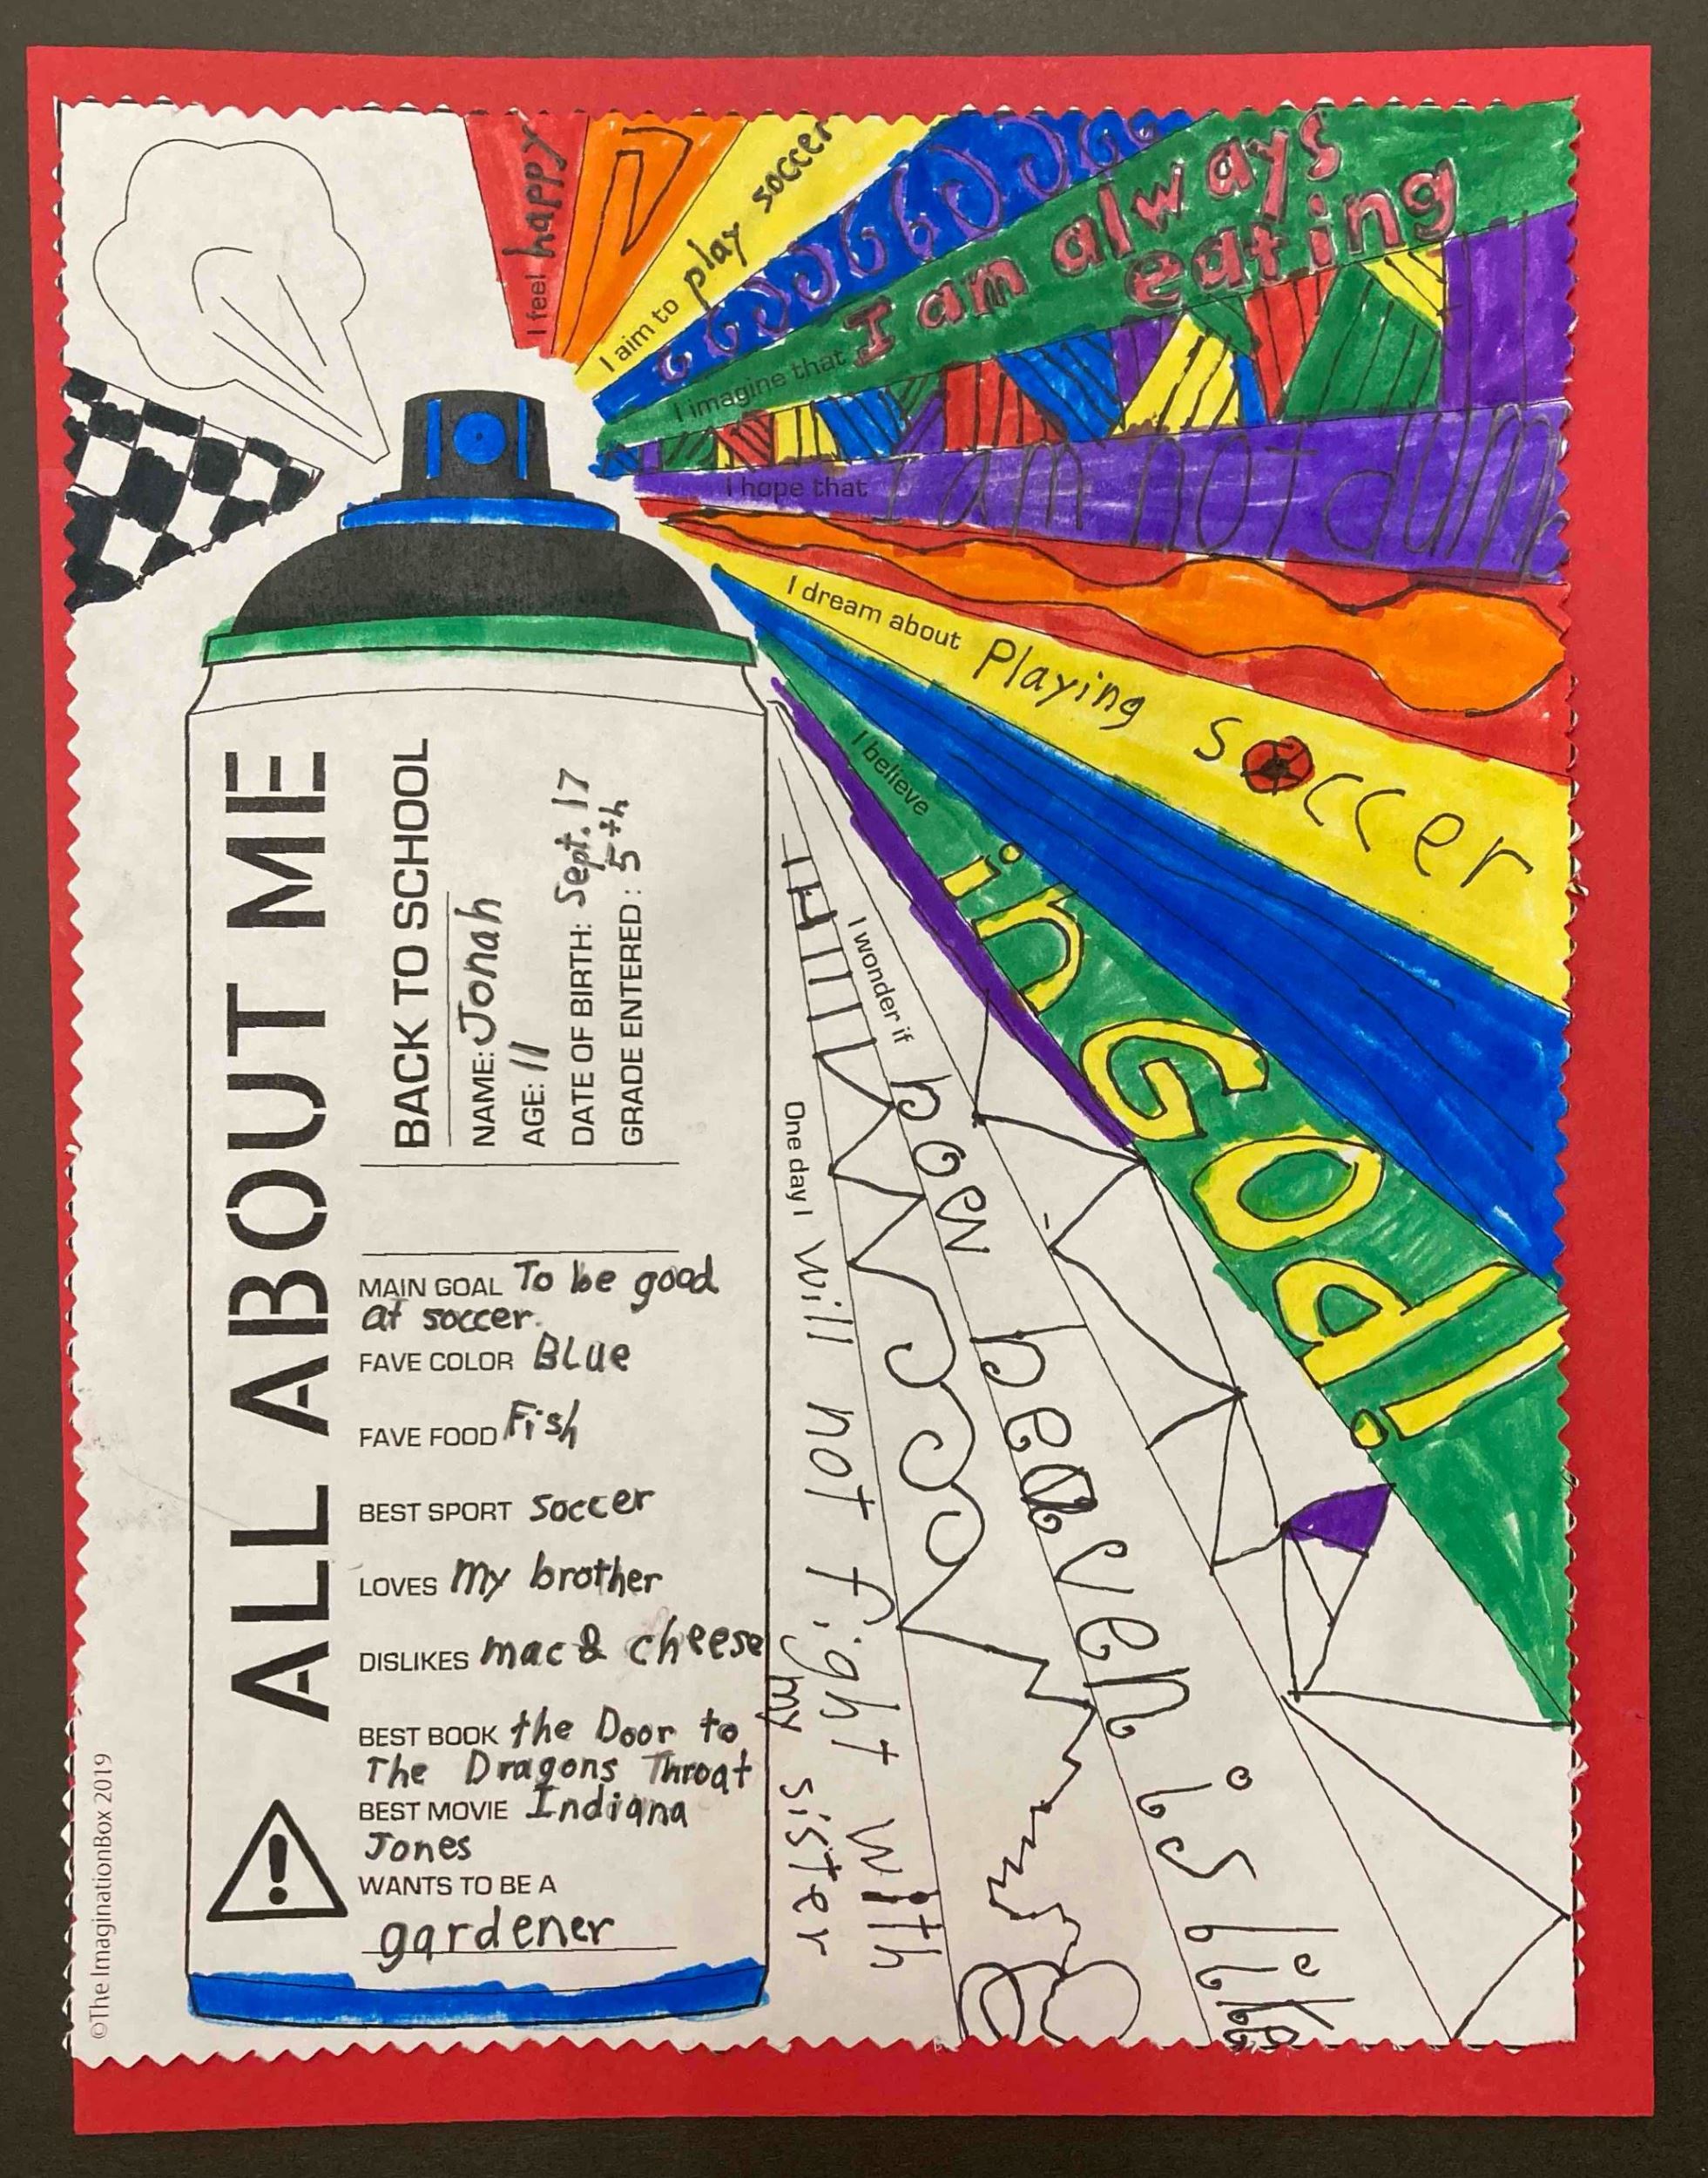 I feel happy
I aim to play soccer
I imagine that I am always
eating
I hope that I am not dum
I dream about Playing soccer
I believe in God!
I wonder if how heaven is like
One day I will not fight with
my sister
ALL ABOUT ME
BACK TO SCHOOL
NAME: Jonah
AGE: 11
DATE OF BIRTH: Sept. 17
GRADE ENTERED: 5th
MAIN GOAL To be good
at soccer.
FAVE COLOR BLue
FAVE FOOD Fish
BEST SPORT soccer
LOVES my brother
DISLIKES mac & cheese
BEST BOOK the Door to
The Dragons Throat
BEST MOVIE Indiana
Jones
WANTS TO BE A
gardener
!
©The ImaginationBox 2019